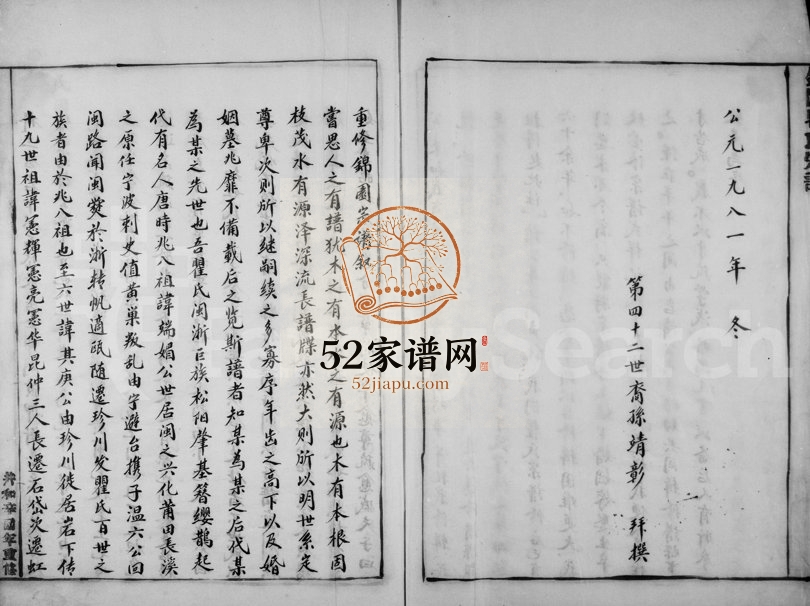 公元一九八一年 冬
第四十二世裔孫靖彰 拜撰
重修錦圃
嘗思人之有譜狄木之有本 之有源也木有本根固
枝茂水有源泽深流長譜牒亦然大則所以明世系定
尊卑次則所以继嗣续之多寡序年齿之高下以及婚
姻墓兆靡不備載后之览斯譜者知某為某之后代某
為某之先世也吾瞿氏闽浙巨族松阳肇基簪缨鹊起
代有名人唐時兆八祖諱端娟公世居闽之兴化莆田長溪
之原任宁波刺史值黄巢叛乱由宁避台携子温六公回
闽路闻闽焚於浙转帆適瓯随遷珍川发瞿氏百世之
族者由於兆八祖也至六世諱其庚公由珍川徙居岩下传
十九世祖諱憲輝憲亮憲华昆仲三人長遷石岱次遷虹
共和幸國年重修
52家谱网
52jiapu.com
Search